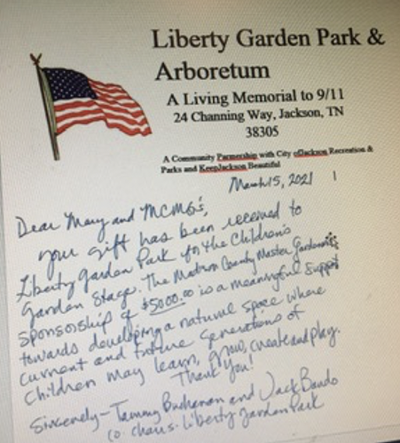 Liberty Garden Park &
Arboretum
A Living Memorial to 9/11
24 Channing Way, Jackson, TN
38305
A Community Partnership with City ofJackson Recreation &
Parks and KeepJackson Beautiful
March 15, 2021
Dear Mary and MCMG's,
your gift has been received to
Liberty Garden Park for the Children's
Garden Stage. The Madison County Master Gardeners
sponsorship of $5000.00 is a meaningful support
towards developing a natural space where
current and future generations of
children may learn, grow, create and play.
Thank you!
Sincerely - Tammy Buchanan and Jack Bando
co. chairs. Liberty Garden Park